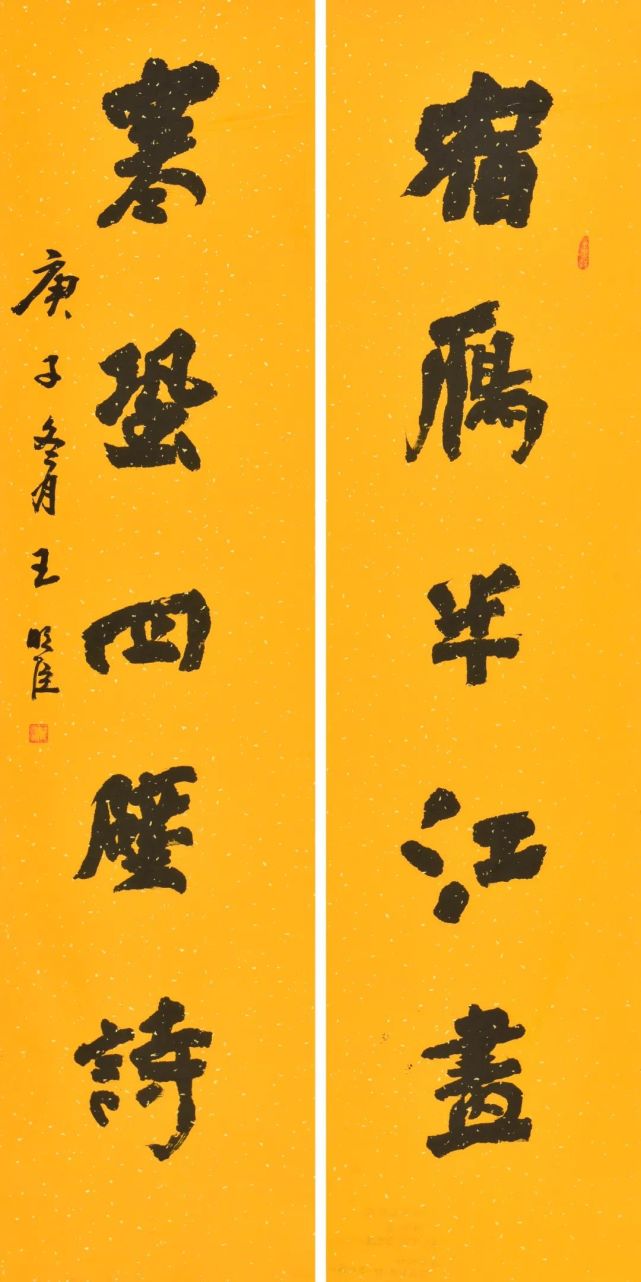 宿鴈半江畫
寒蛩四壁詩
庚子冬月王明臣